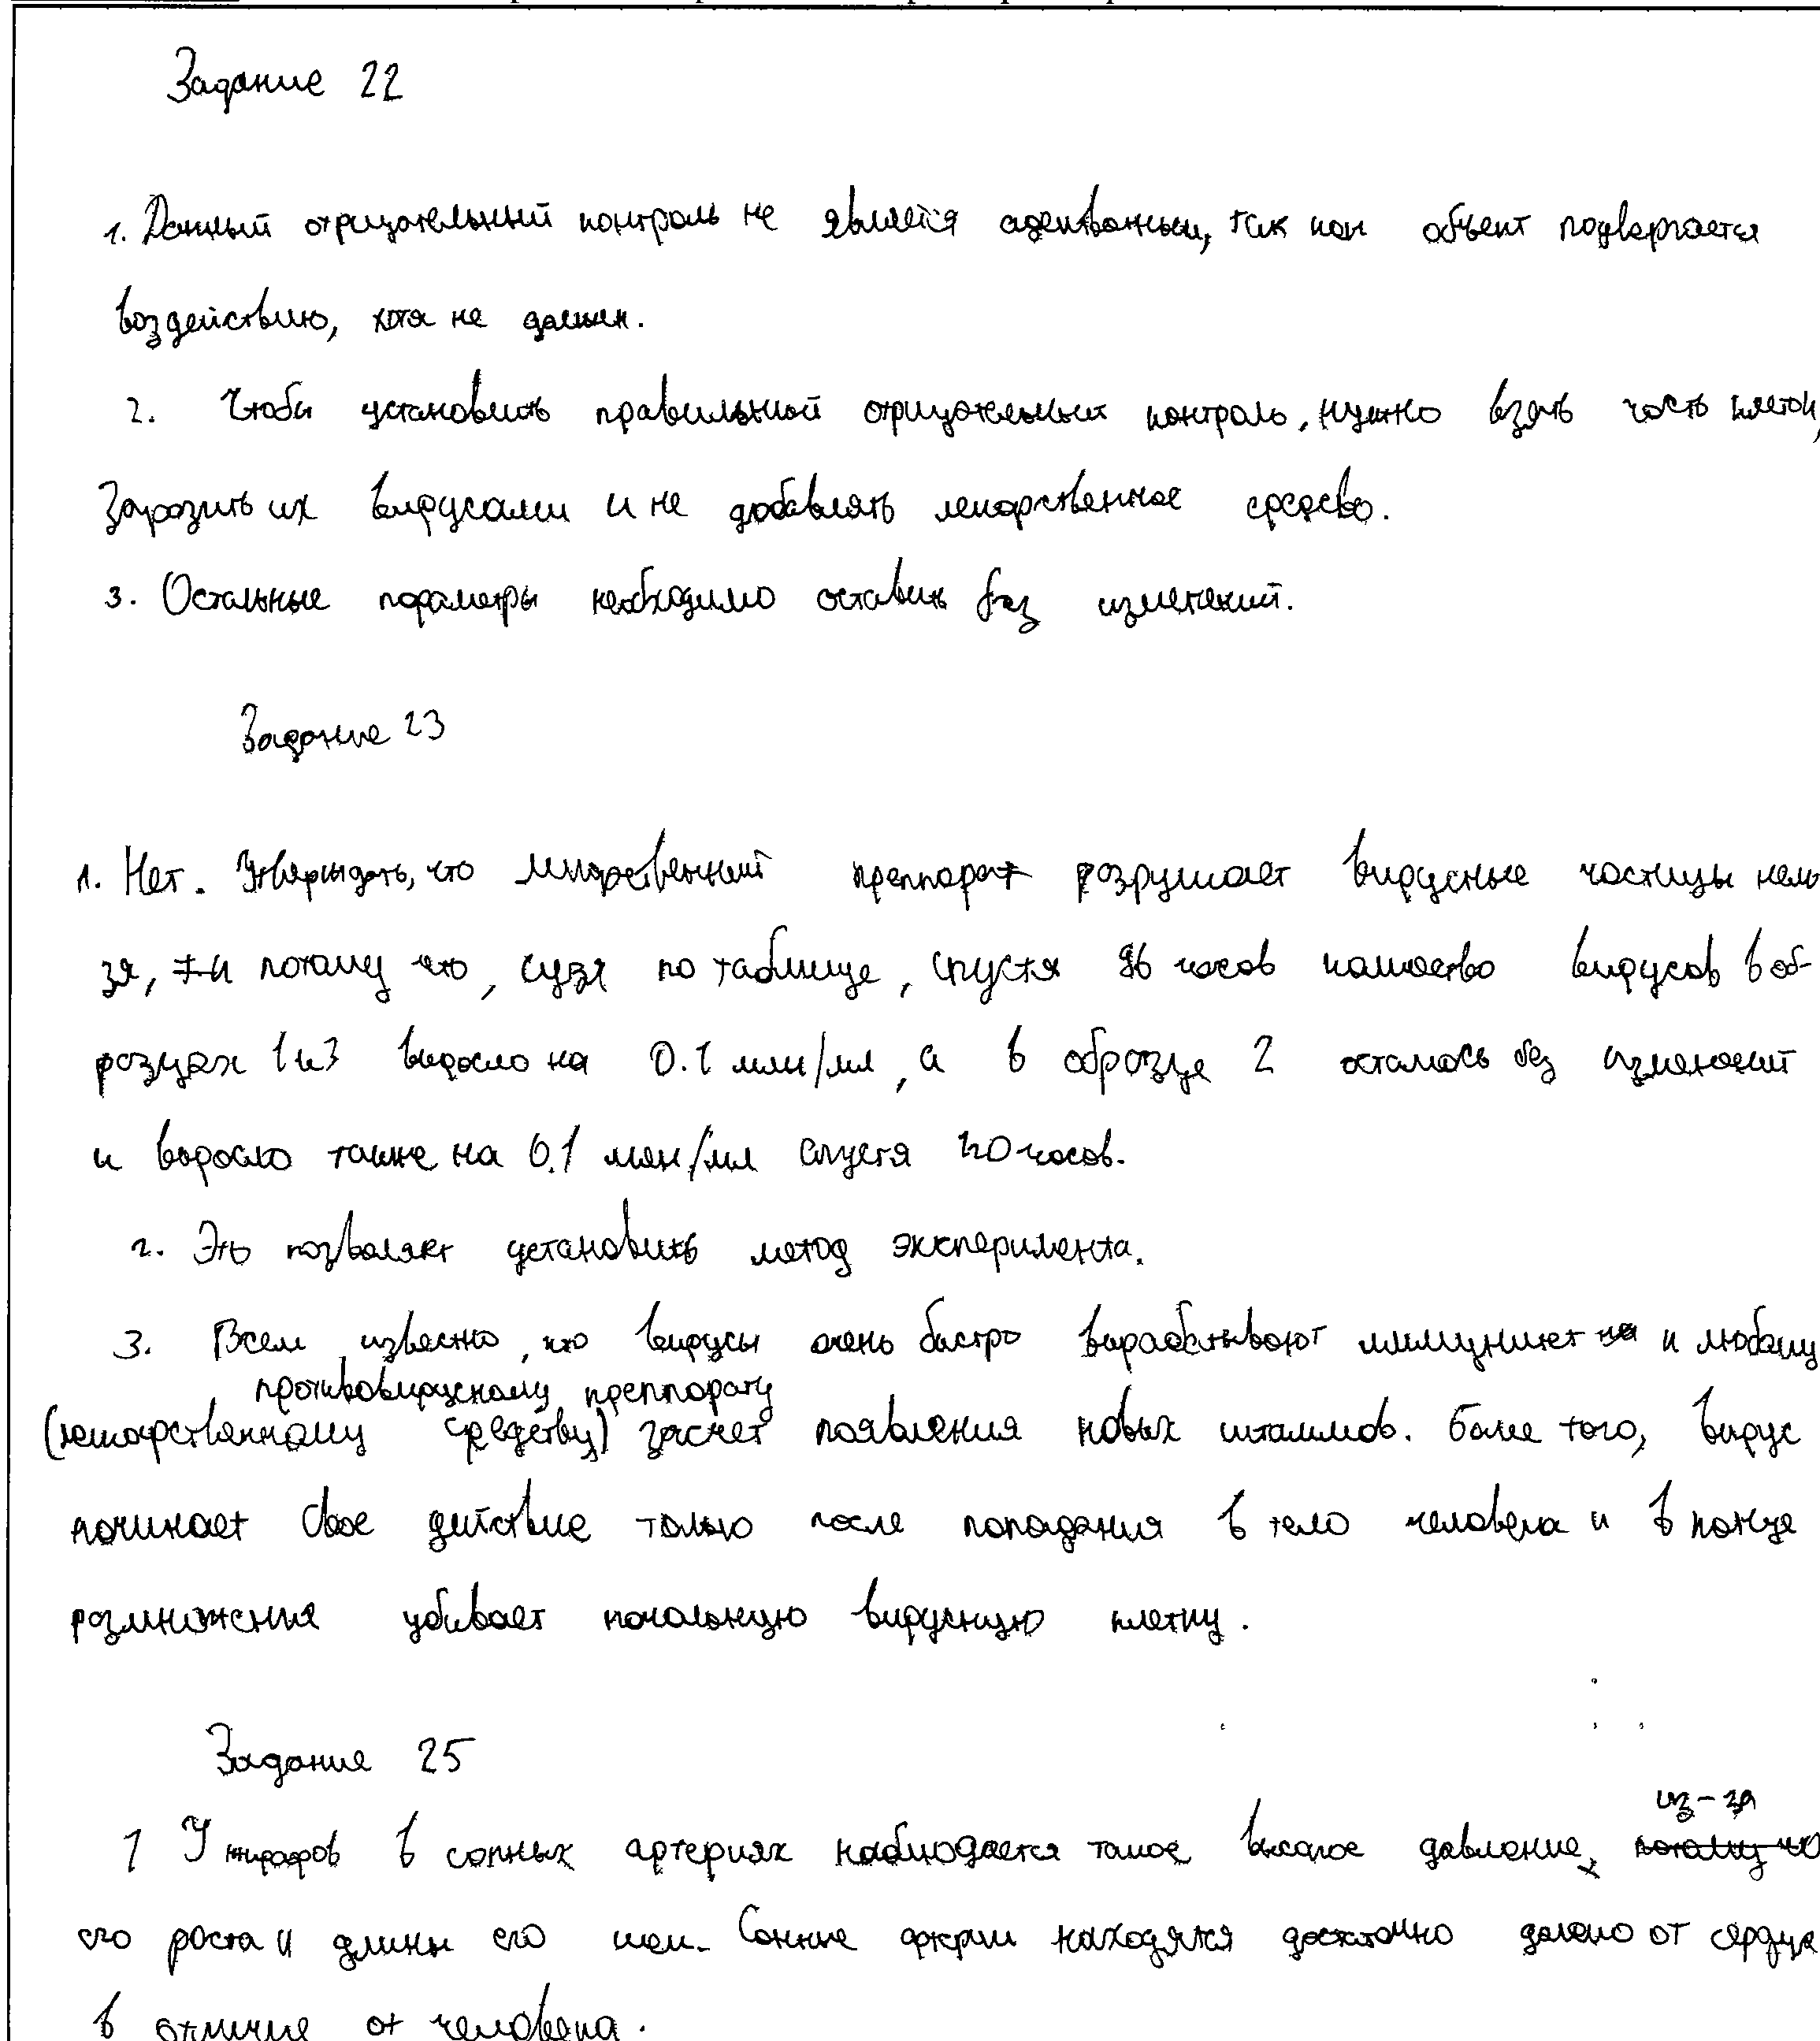 Задание 22
1. Данный отрицательный контроль не является адекватным, так как объект подвергается
воздействию, хотя не должен.
2. Чтобы установить правильный отрицательный контроль, нужно взять часть клеток,
заразить их вирусами и не добавлять лекарственное средсво.
3. Остальные параметры необходимо оставить без изменений.
Задание 23
1. Нет. Утверждать, что лекарственный преппорат разрушает вирусные частицы нель
зя, потому что, судя по таблице, спустя 96 часов количество вирусов в об-
разцах 1 и 3 выросло на 0.1 млн/мл, а в образце 2 осталось без изменений
и выросло также на 0.1 млн/мл спустя 120 часов.
2. Это позволяет установить метод эксперимента.
3. Всем известно, что вирусы очень быстро вырабатывают иммунитет к любому
противовирусному преппорату
(лекарственному средству) засчет появления новых штаммов. Более того, вирус
начинает свое действие только после попадания в тело человека и в конце
размножения убивает начальную вирусную клетку.
Задание 25
из-за
1 У жирафов в сонных артериях наблюдается такое высокое давление, потому что
его роста и длины его шеи. Сонные артерии находятся достаточно далеко от сердца
в отличие от человека.